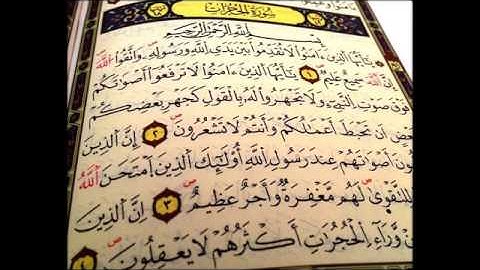 سُورَةُ الْحُجُرَاتِ
بِسْمِ اللَّهِ الرَّحْمَٰنِ الرَّحِيمِ
يَٰٓأَيُّهَا الَّذِينَ ءَامَنُوا لَا تُقَدِّمُوا بَيْنَ يَدَيِ اللَّهِ وَرَسُولِهِ ۖ وَاتَّقُوا اللَّهَ
إِنَّ اللَّهَ سَمِيعٌ عَلِيمٌ ١ يَٰٓأَيُّهَا الَّذِينَ ءَامَنُوا لَا تَرْفَعُوٓا أَصْوَٰتَكُمْ
فَوْقَ صَوْتِ النَّبِيِّ وَلَا تَجْهَرُوا لَهُ بِالْقَوْلِ كَجَهْرِ بَعْضِكُمْ
لِبَعْضٍ أَن تَحْبَطَ أَعْمَٰلُكُمْ وَأَنتُمْ لَا تَشْعُرُونَ ٢ إِنَّ الَّذِينَ
أَصْوَٰتَهُمْ عِندَ رَسُولِ اللَّهِ أُو۟لَٰٓئِكَ الَّذِينَ امْتَحَنَ اللَّهُ
لِلتَّقْوَىٰ ۚ لَهُم مَّغْفِرَةٌ وَأَجْرٌ عَظِيمٌ ٣ إِنَّ الَّذِينَ
وَرَآءِ الْحُجُرَٰتِ أَكْثَرُهُمْ لَا يَعْقِلُونَ ٤